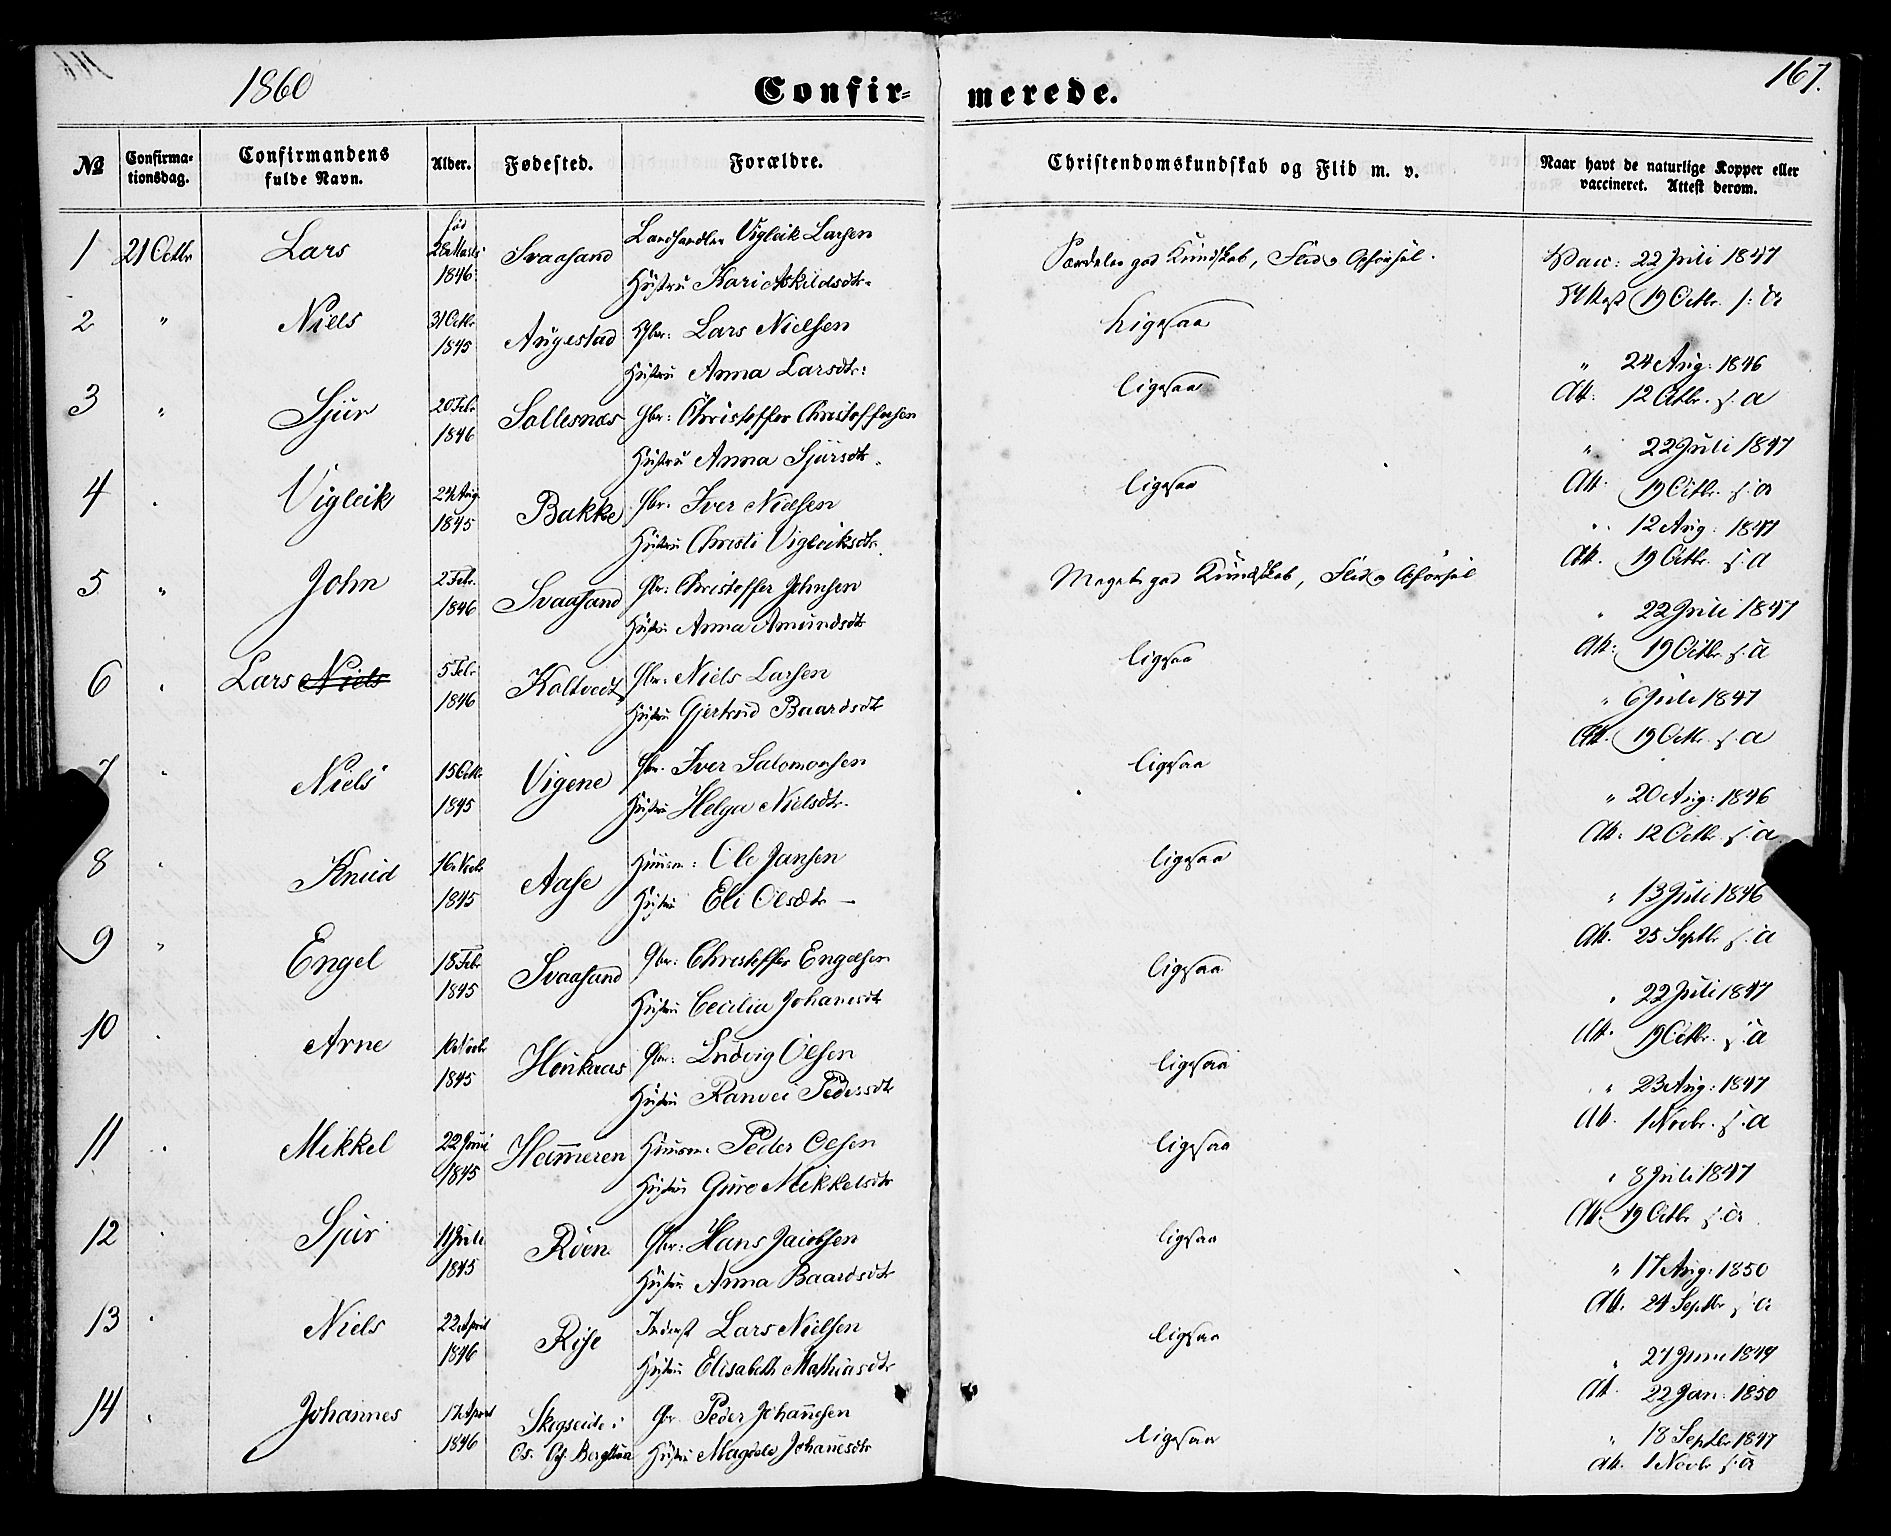 1860
Confir-
merede.
167.
№
Confirma-
tionsdag.
Confirmandens
fulde Navn.
Alder.
Fødested.
Forældre.
Christendomskundskab og Flid m. v.
Naar havt de naturlige Kopper eller
vaccineret. Attest derom.
1 21 Octbr Lars født 28 Marts 1846 Svaasand Landhandler Vigleik Larsen
Hustru Kari Askildsdtr.
Særdeles god Kundskab, Flid og Opførsel. Vacc: 22 Juli 1847
Attest 19 Octbr. s: a
2 " Niels 31 Octbr 1845 Augestad Gbr: Lars Nielsen
Hustru Anna Larsdtr:
Ligesaa " 24 Aug: 1846
Att: 12 Octbr. s. a
3 " Sjur 20 Febr 1846 Sollesnæs Gbr: Christoffer Christoffersen
Hustru Anna Sjursdtr.
ligesaa " 22 Juli 1847
Att. 19 Octbr. s: a
4 " Vigleik 24 Aug. 1845 Bakke Gbr. Iver Nielsen
Hustru Christi Vigleiksdtr.
ligesaa " 12 Aug: 1847
Att. 19 Octbr. s. a
5 " John 2 Febr. 1846 Svaasand Gbr: Christoffer Johnsen
Hustru Anna Amundsdtr
Meget god Kundskab, Flid og Opførsel " 22 Juli 1847
Att: 19 Octbr s: a
6 " Lars Niels 5 Febr 1846 Koltvedt Gbr: Niels Larsen
Hustru Gjertrud Baardsdtr
ligesaa " 6 Juli 1847
Att. 19 Octbr. s. a
7 " Niels 15 Octbr. 1845 Vigene Gbr. Iver Salomonsen
Hustru Helga Nielsdtr.
ligesaa " 20 Aug: 1846
Att: 12 Octbr. s. a
8 " Knud 16 Novbr 1845 Aase Huusm: Ole Jansen
Hustru Eli Olsdtr —
ligesaa " 13 Juli 1846
Att. 25 Septbr s: a
9 " Engel 18 Febr 1845 Svaasand Gbr: Christoffer Engelsen
Hustru Cecilia Johannesdtr
ligesaa " 22 Juli 1847
Att. 19 Octbr. s. a
10 " Arne 10 Novbr 1845 Gbr: Ludvig Olsen
Hustru Ranvei Pedersdtr
ligesaa " 23 Aug: 1847
Att. 1 Novbr. s: a
11 " Mikkel 22 Juni 1845 Ham̄eren Huusm. Peder Olsen
Hustru Guro Mikkelsdtr
ligesaa " 8 Juli 1847
Att: 19 Octbr s: a
12 " Sjur 11 Juli 1845 Röen Gbr: Hans Jacobsen
Hustru Anna Baardsdtr
ligesaa " 17 Aug: 1850
Att. 24 Septbr s: a
13 " Niels 22 April 1846 Rise Inderst Lars Nielsen
Hustru Elisabeth Mathiasdtr
ligesaa " 27 Juni 1849
Att. 22 Jan: 1850
14 " Johannes 17 April 1846 Skogseide i Gbr. Peder Johan̄esen
Os. Hustru Magdela Johan̄esdtr
ligesaa " 18 Septbr 1847
Att. 1 Novbr s: a